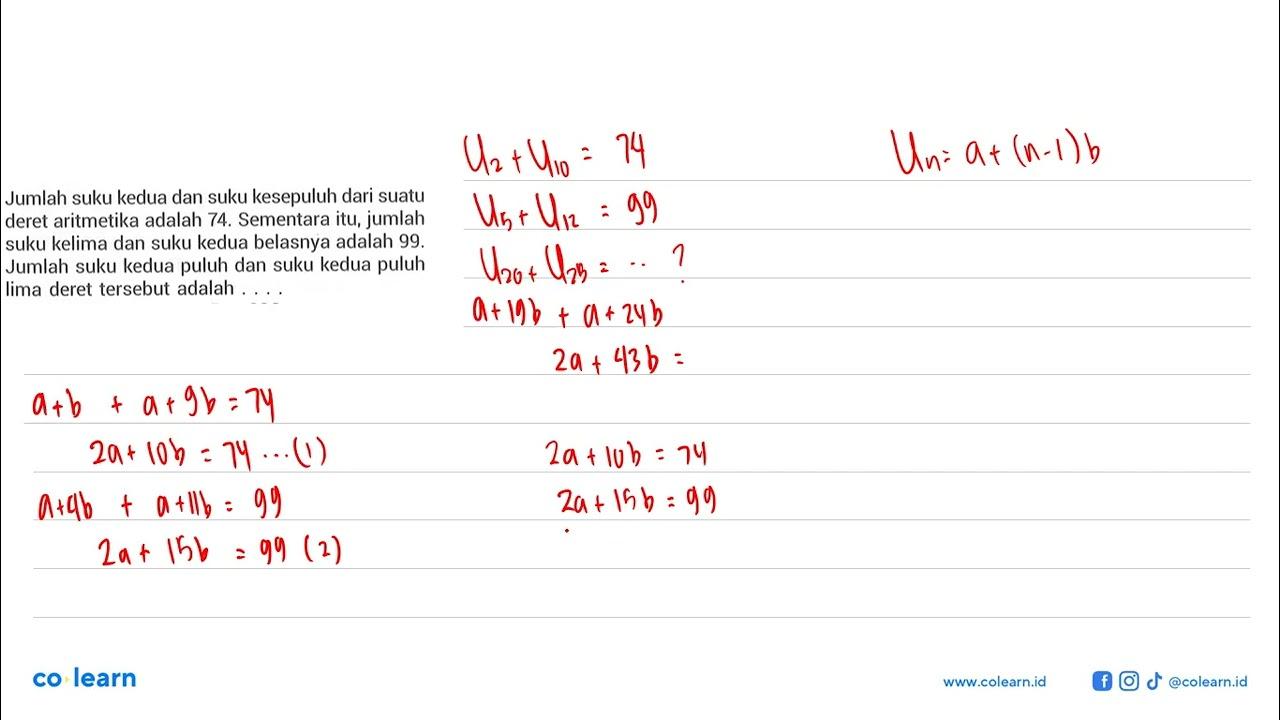 Jumlah suku kedua dan suku kesepuluh dari suatu
deret aritmetika adalah 74. Sementara itu, jumlah
suku kelima dan suku kedua belasnya adalah 99.
Jumlah suku kedua puluh dan suku kedua puluh
lima deret tersebut adalah . . . .
U2 + U10 = 74
U5 + U12 = 99
U20 + U25 = .. ?
a + 19b + a + 24b
2a + 43b =
Un = a + (n-1)b
a+b + a+9b = 74
2a + 10b = 74 ...(1)
a+4b + a+11b = 99
2a + 15b = 99 (2)
2a + 10b = 74
2a + 15b = 99
co learn
www.colearn.id
@colearn.id